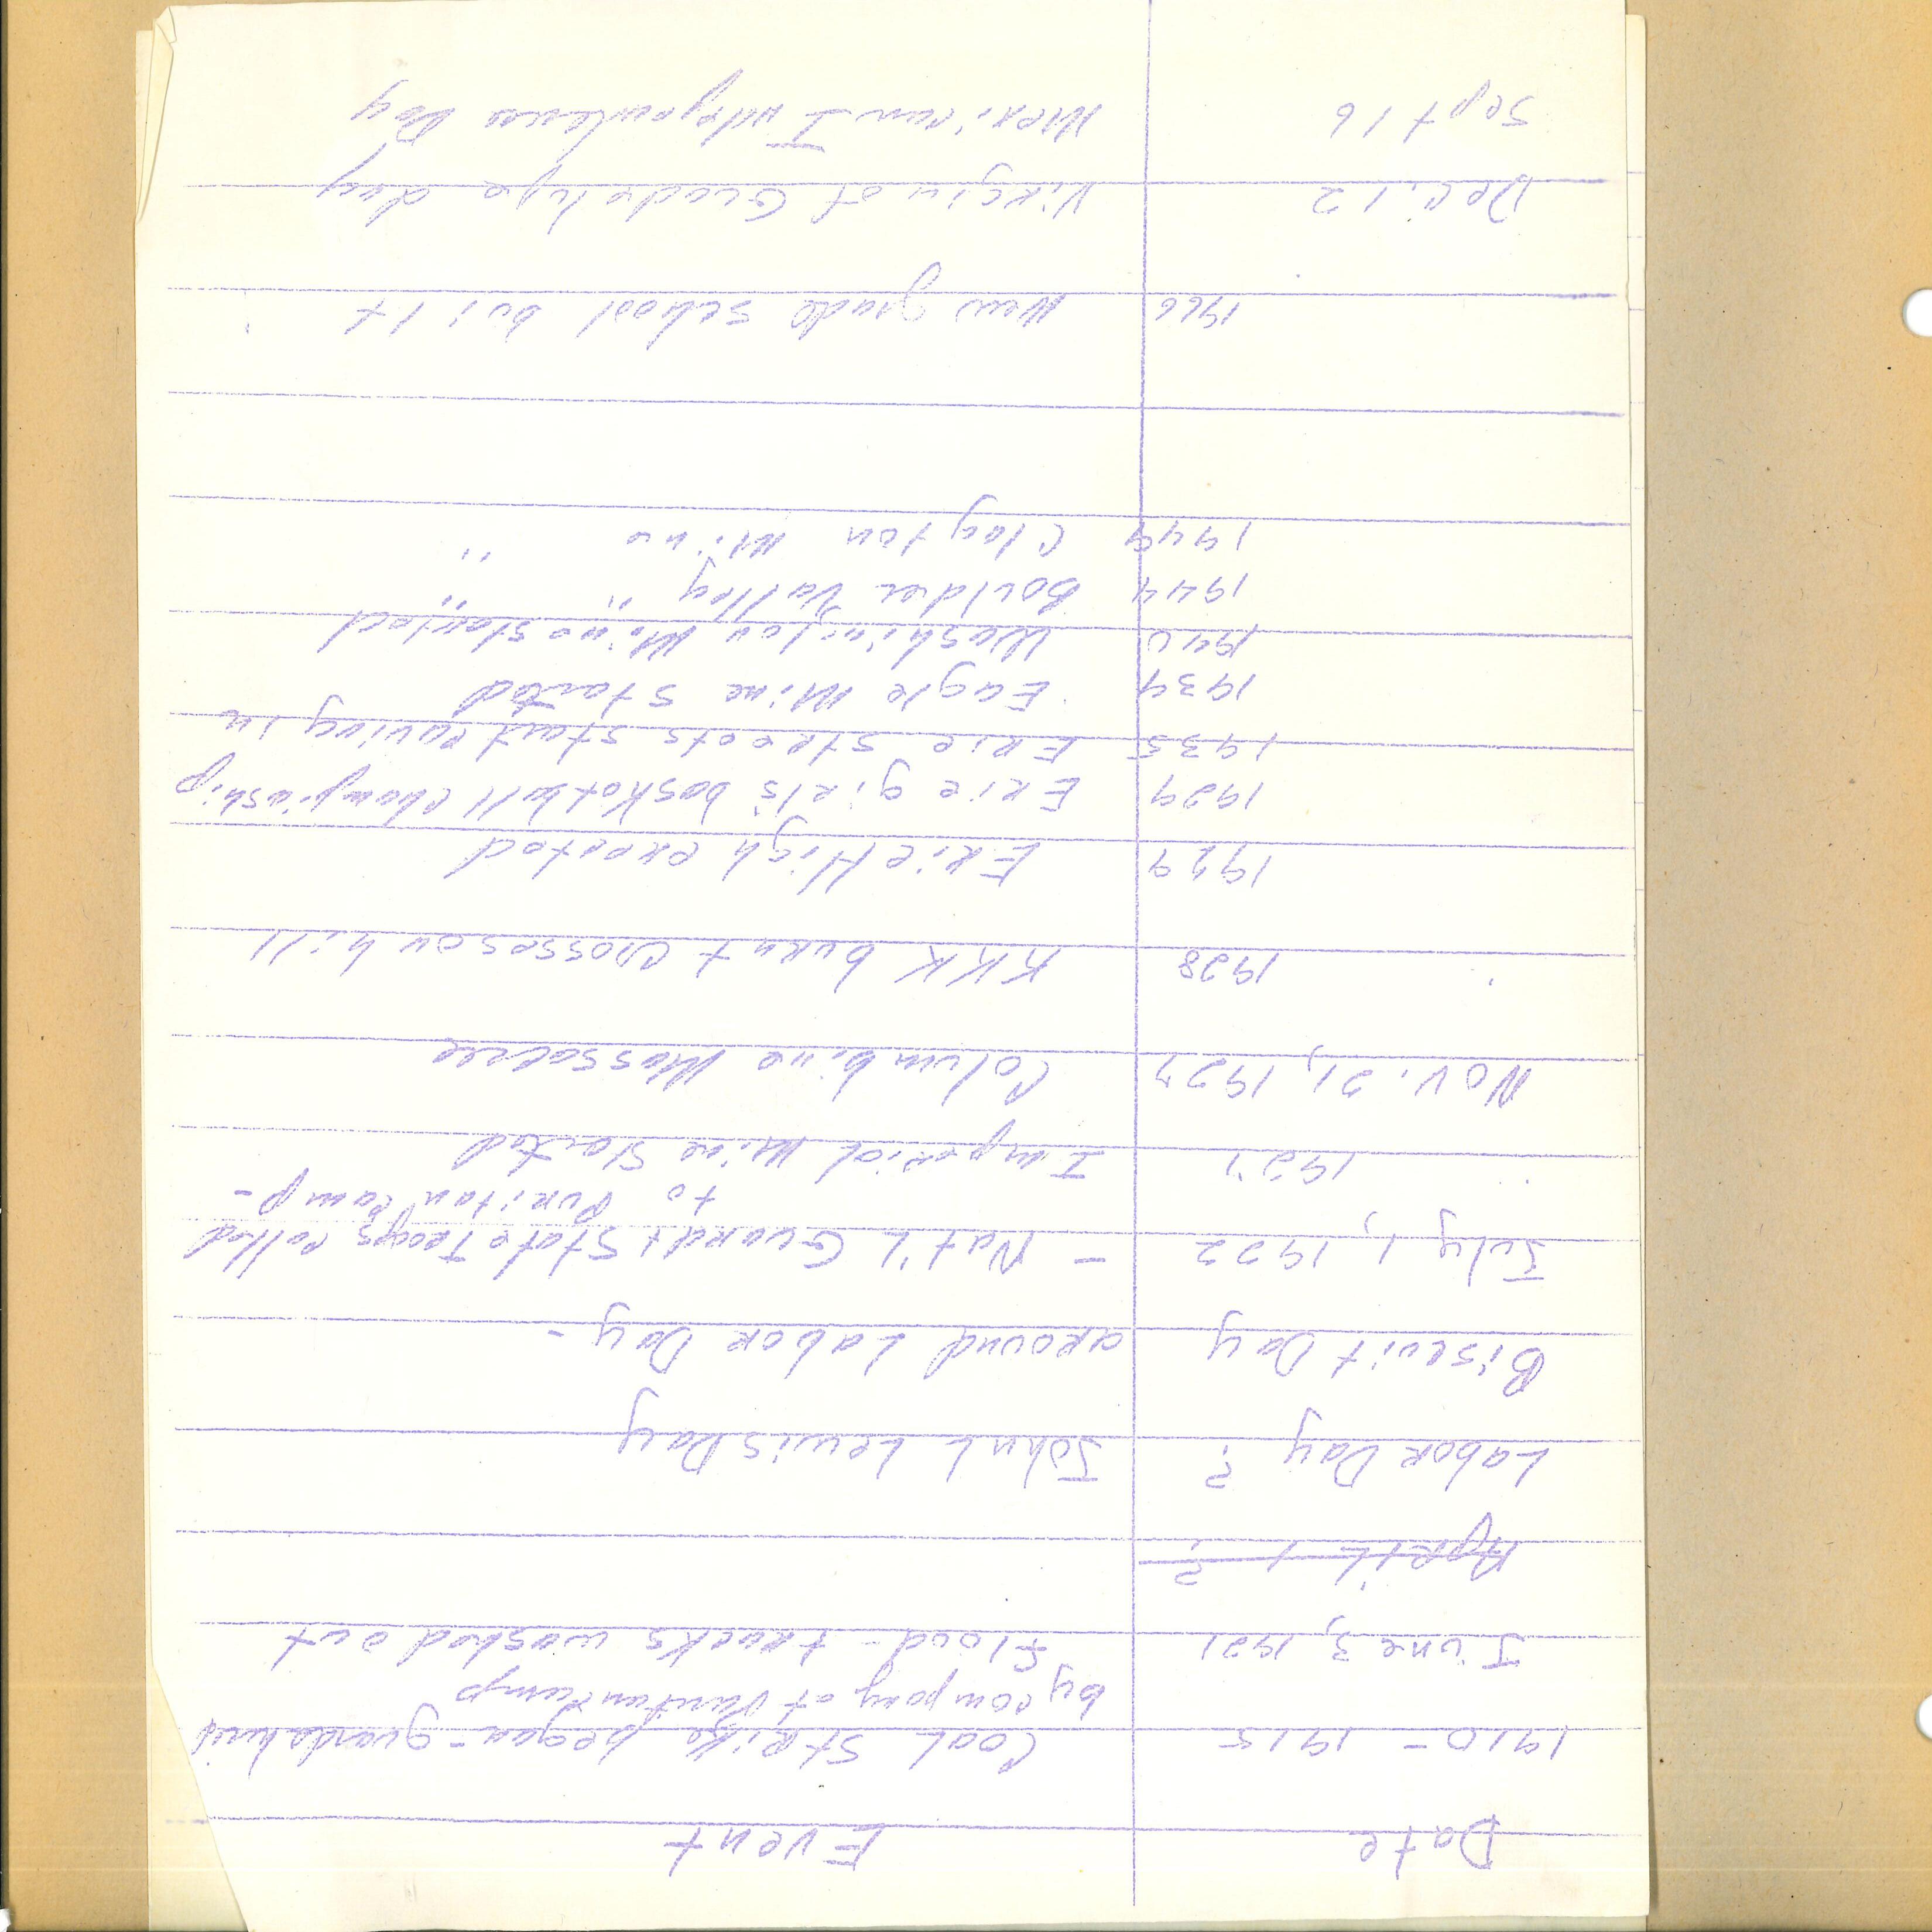 Date Event
1910 - 1915 Coal Strike began - guards hired
by company at Puritan camp
June 3, 1921 flood - tracks washed out
April 1 ?
Labor Day ? John L Lewis Day
Biscuit Day around Labor Day -
July 1, 1922 - Nat'l Guard & State Troops called
to Puritan Camp -
1927 Imperial Mine started
Nov. 21, 1927 Columbine Massacree
1928 KKK burnt crosses on hill
1929 Erie High erected
1929 Erie girl's basketball championship
1935 Erie streets start caving in
1939 Eagle Mine started
1940 Washington Mine started
1944 Boulder Valley " "
1949 Clayton Mine "
1966 New grade school built
Dec. 12 Virgin of Guadelupe day
Sept 16 Mexican Independence Day